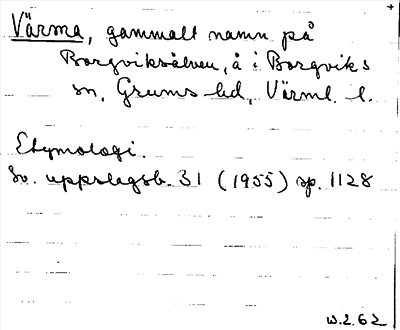 Värma, gammalt namn på
Borgviksälven, å i Borgviks
sn, Grums hd, Värml. l.
Etymologi.
Sv. uppslagsb. 31 (1955) sp. 1128
W.2.62